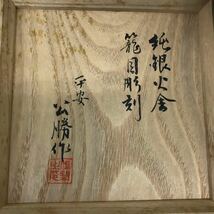 純銀火舎
籠目彫刻
平安
公勝作